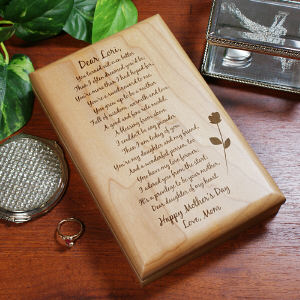 Dear Lori,
You turned out even better
Than I often dreamed you'd be,
You're more than I had hoped for,
You're a real reward to me.
You grew up to be a mother
Full of wisdom, warmth and love
A good and fine role model
A blessing from above.
I couldn't be any prouder
Than I am today of you,
You're my daughter and my friend,
And a wonderful person, too.
You have my love forever
I adored you from the start,
It's a privilege to be your mother,
Dear daughter of my heart.
Happy Mother's Day
Love, Mom